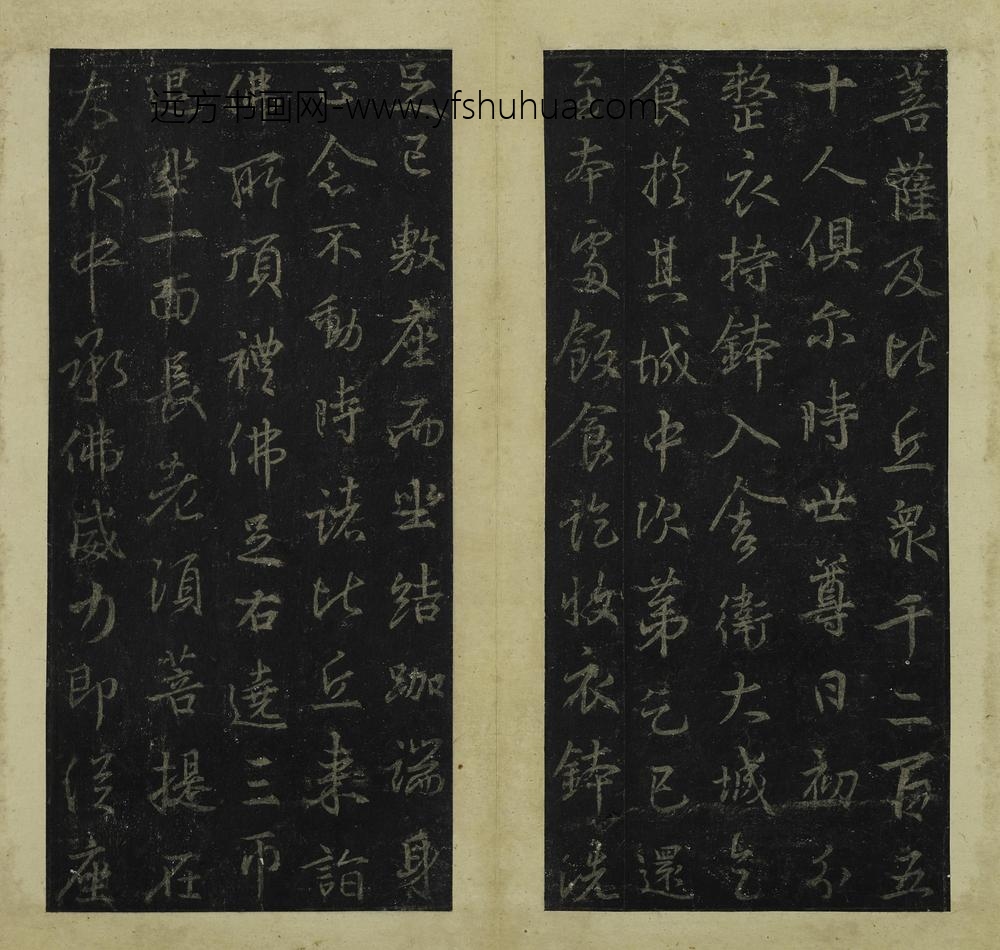 菩薩及比丘衆千二百五
十人俱尔時世尊日初分
整衣持鉢入舍衛大城乞
食於其城中次第乞已還
至本處飯食訖收衣鉢洗
足已敷座而坐結跏端身
正念不動時諸比丘來詣
佛所頂禮佛足右遶三帀
退坐一面長老須菩提在
大衆中承佛威力即從座
远方书画网-www.yfshuhua.com